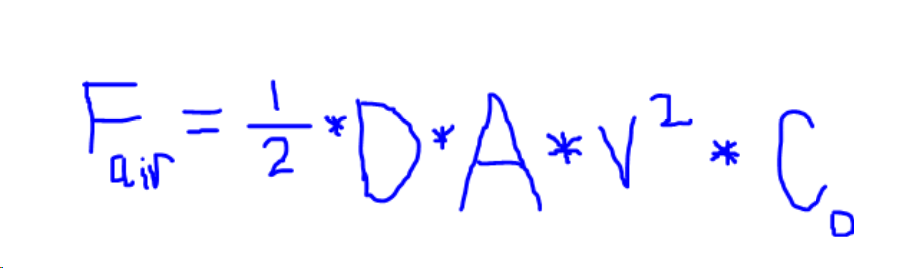 F_air = 1/2 * D * A * V² * C_D